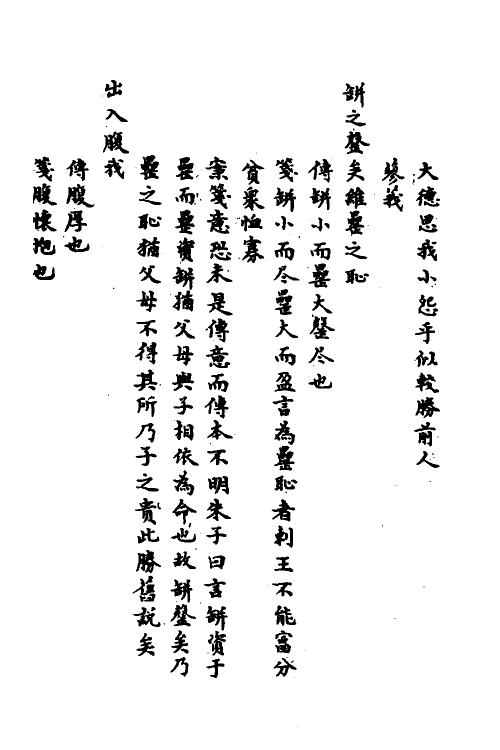 大德思我小怨乎似較勝前人
蓼莪
缾之罄矣維罍之恥
傳缾小而罍大罄尽也
箋缾小而尽罍大而盈言為罍恥者刺王不能富分
貧衆恤寡
案箋意恐未是傳意而傳本不明朱子曰言缾資于
罍而罍資缾猶父母與子相依為命也故缾罄矣乃
罍之恥猶父母不得其所乃子之責此勝舊説矣
出入腹我
傳腹厚也
箋腹懷抱也